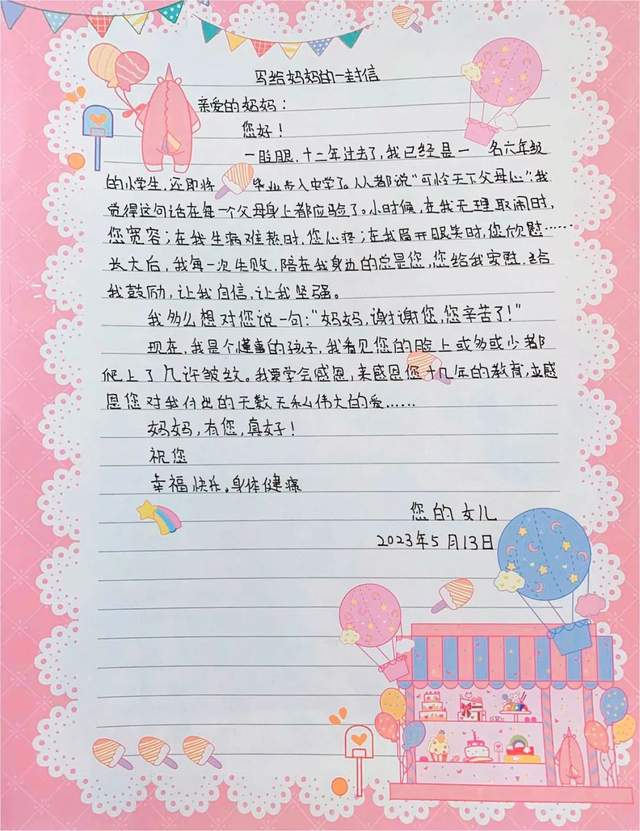 写给妈妈的一封信
亲爱的妈妈：
您好！
一眨眼，十二年过去了，我已经是一名六年级
的小学生，还即将毕业步入中学了。人人都说“可怜天下父母心”，我
觉得这句话在每一个父母身上都应验了。小时候，在我无理取闹时，
您宽容；在我生病难熬时，您心疼；在我眉开眼笑时，您欣慰……
长大后，我每一次失败，陪在我身边的总是您，您给我安慰，给
我鼓励，让我自信，让我坚强。
我多么想对您说一句：“妈妈，谢谢您，您辛苦了！”
现在，我是个懂事的孩子，我看见您的脸上或多或少都
爬上了几许皱纹。我要学会感恩，来感恩您十几年的教育，并感
恩您对我付出的无数无私伟大的爱……
妈妈，有您，真好！
祝您
幸福快乐。身体健康
您的女儿
2023年5月13日